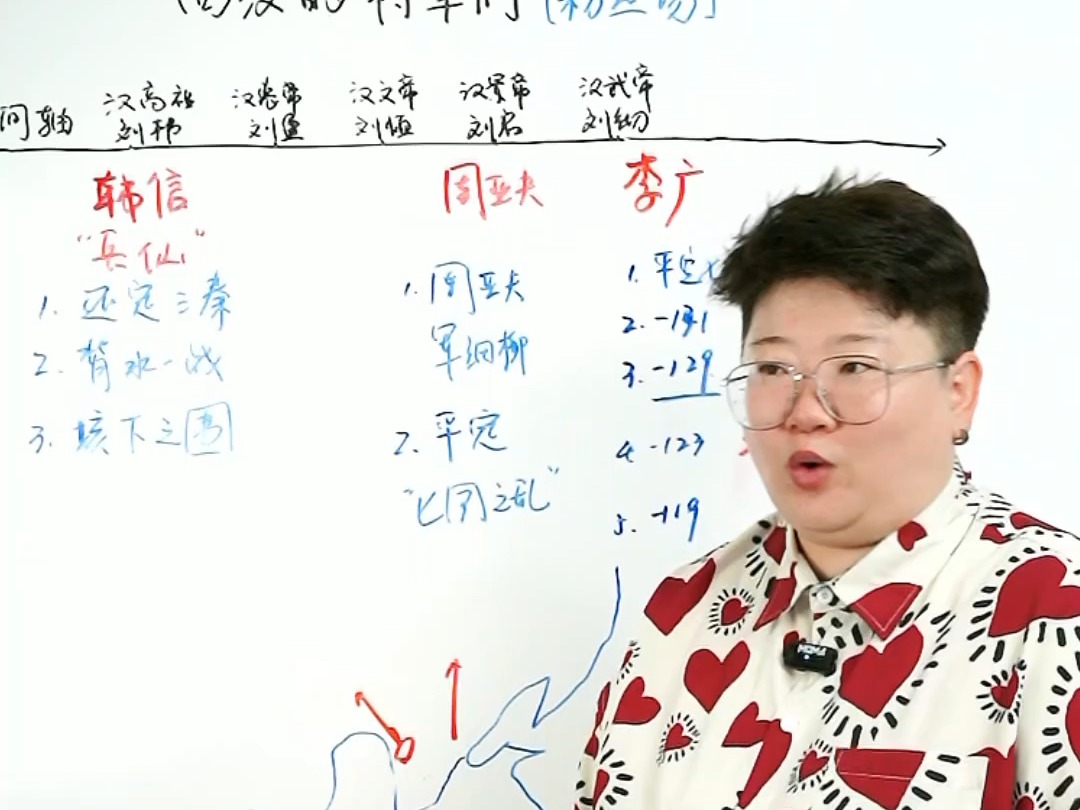 西汉的将军们(粉丝场)
间轴
汉高祖 汉惠帝 汉文帝 汉景帝 汉武帝
刘邦 刘盈 刘恒 刘启 刘彻
韩信
"兵仙"
1. 还定三秦
2. 背水一战
3. 垓下之围
周亚夫
1. 周亚夫
军细柳
2. 平定
"七国之乱"
李广
1. 平定七
2. -131
3. -129
4. -123
5. -119
MOMA